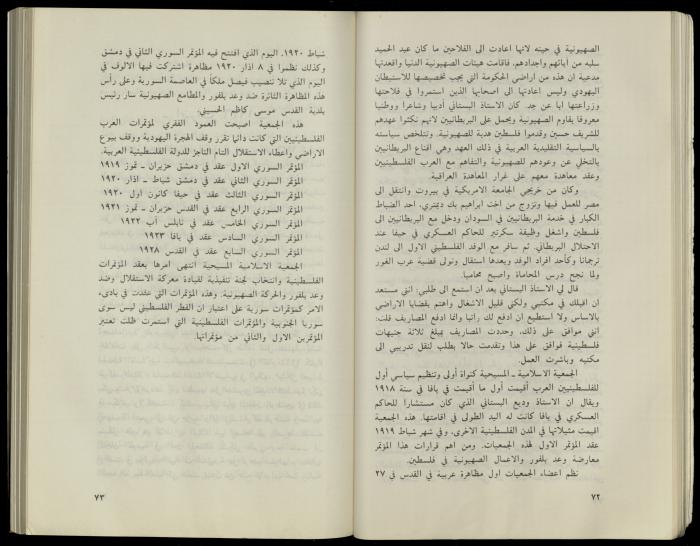 الصهيونية في حينه لانها اعادت الى الفلاحين ما كان عبد الحميد
سلبه من آبائهم واجدادهم، فاقامت هيئات الصهيونية الدنيا واقعدتها
مدعية ان هذه من اراضي الحكومة التي يجب تخصيصها للاستيطان
اليهودي وليس اعادتها الى اصحابها الذين استمروا في فلاحتها
وزراعتها ابا عن جد. كان الاستاذ البستاني أديبا وشاعرا ووطنيا
معروفا يقاوم الصهيونية ويحمل على البريطانيين لانهم نكثوا عهدهم
للشريف حسين وقدموا فلسطين هدية للصهيونية. وتتلخص سياسته
بالسياسة التقليدية العربية في ذلك العهد وهي اقناع البريطانيين
بالتخلي عن وعودهم للصهيونية والتفاهم مع العرب الفلسطينيين
وعقد معاهدة معهم على غرار المعاهدة العراقية.
وكان من خريجي الجامعة الامريكية في بيروت وانتقل الى
مصر للعمل فيها وتزوج من اخت ابراهيم بك ديمتري، احد الضباط
الكبار في خدمة البريطانيين في السودان ودخل مع البريطانيين الى
فلسطين واشغل وظيفة سكرتير للحاكم العسكري في حيفا عند
الاحتلال البريطاني. ثم سافر مع الوفد الفلسطيني الاول الى لندن
ترجمانا وكأحد افراد الوفد وبعدها استقال وتولى قضية عرب الغور
ولما نجح درس المحاماة واصبح محاميا.
قال لي الاستاذ البستاني بعد ان استمع الى طلبي: انني مستعد
ان اقبلك في مكتبي ولكني قليل الاشغال واهتم بقضايا الاراضي
بالاساس ولا استطيع ان ادفع لك راتبا وانما ادفع المصاريف قلت:
انني موافق على ذلك، وحددت المصاريف بمبلغ ثلاثة جنيهات
فلسطينية فوافق على هذا وتقدمت حالا بطلب لنقل تدريبي الى
مكتبه وباشرت العمل.
الجمعية الاسلامية ـ المسيحية كنواة أولى وتنظيم سياسي أول
للفلسطينيين العرب أقيمت أول ما أقيمت في يافا في سنة ١٩١٨
ويقال ان الاستاذ وديع البستاني الذي كان مستشارا للحاكم
العسكري في يافا كانت له اليد الطولى في اقامتها. هذه الجمعية
اقيمت مثيلاتها في المدن الفلسطينية الاخرى، وفي شهر شباط ١٩١٩
عقد المؤتمر الاول لهذه الجمعيات. ومن اهم قرارات هذا المؤتمر
معارضة وعد بلفور والاعمال الصهيونية في فلسطين.
نظم اعضاء الجمعيات اول مظاهرة عربية في القدس في ٢٧
٧٢
شباط ١٩٢٠، اليوم الذي افتتح فيه المؤتمر السوري الثاني في دمشق
وكذلك نظموا في ٨ اذار ١٩٢٠ مظاهرة اشتركت فيها الالوف في
اليوم الذي تلا تنصيب فيصل ملكاً في العاصمة السورية وعلى رأس
هذه المظاهرة الثائرة ضد وعد بلفور والمطامع الصهيونية سار رئيس
بلدية القدس موسى كاظم الحسيني.
هذه الجمعية اصبحت العمود الفقري لمؤتمرات العرب
الفلسطينيين التي كانت دائما تقرر وقف الهجرة اليهودية ووقف بيوع
الاراضي واعطاء الاستقلال التام الناجز للدولة الفلسطينية العربية.
المؤتمر السوري الاول عقد في دمشق حزيران ـ تموز ١٩١٩
المؤتمر السوري الثاني عقد في دمشق شباط ـ اذار ١٩٢٠
المؤتمر السوري الثالث عقد في حيفا كانون اول ١٩٢٠
المؤتمر السوري الرابع عقد في القدس حزيران ـ تموز ١٩٢١
المؤتمر السوري الخامس عقد في نابلس آب ١٩٢٢
المؤتمر السوري السادس عقد في يافا ١٩٢٣
المؤتمر السوري السابع عقد في القدس ١٩٢٨
الجمعية الاسلامية المسيحية انتهى امرها بعقد المؤتمرات
الفلسطينية وانتخاب لجنة تنفيذية لقيادة معركة الاستقلال وضد
وعد بلفور والحركة الصهيونية. وهذه المؤتمرات التي عقدت في بادىء
الامر كمؤتمرات سورية على اعتبار ان القطر الفلسطيني ليس سوى
سوريا الجنوبية والمؤتمرات الفلسطينية التي استمرت ظلت تعتبر
المؤتمرين الاول والثاني من مؤتمراتها.
٧٣